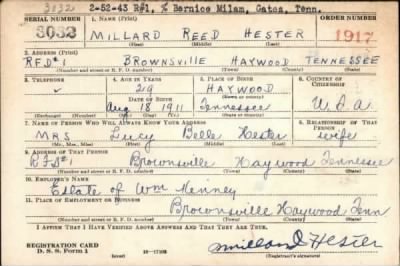 3032 2-52-43 R#1, % Bernice Milam, Gates, Tenn.
SERIAL NUMBER 1. NAME (Print) ORDER NUMBER
3032 MILLARD REED HESTER 1917
(First) (Middle) (Last)
2. ADDRESS (Print)
RFD#1 BROWNSVILLE HAYWOOD TENNESSEE
(Number and street or R. F. D. number) (Town) (County) (State)
3. TELEPHONE 4. AGE IN YEARS 5. PLACE OF BIRTH 6. COUNTRY OF CITIZENSHIP
29 HAYWOOD
(Town or county)
DATE OF BIRTH
Aug 18 1911 Tennessee U.S.A.
(Exchange) (Number) (Mo.) (Day) (Yr.) (State or country)
7. NAME OF PERSON WHO WILL ALWAYS KNOW YOUR ADDRESS 8. RELATIONSHIP OF THAT PERSON
MRS Lucy Belle Hester wife
(Mr., Mrs., Miss) (First) (Middle) (Last)
9. ADDRESS OF THAT PERSON
RFD#1 Brownsville Haywood Tennessee
(Number and street or R. F. D. number) (Town) (County) (State)
10. EMPLOYER'S NAME
Estate of Wm Kinney
11. PLACE OF EMPLOYMENT OR BUSINESS
Brownsville Haywood Tenn
(Number and street or R. F. D. number) (Town) (County) (State)
I AFFIRM THAT I HAVE VERIFIED ABOVE ANSWERS AND THAT THEY ARE TRUE.
REGISTRATION CARD
D. S. S. Form 1 16—17105 Millard Hester
(Registrant's signature)